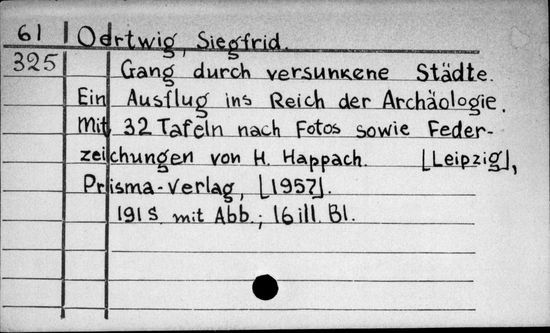 61 Oertwig, Siegfrid.
325 Gang durch versunkene Städte.
Ein Ausflug ins Reich der Archäologie.
Mit 32 Tafeln nach Fotos sowie Feder-
zeichungen von H. Happach. [Leipzig],
Prisma-Verlag, [1957].
191 S. mit Abb.; 16 ill. Bl.